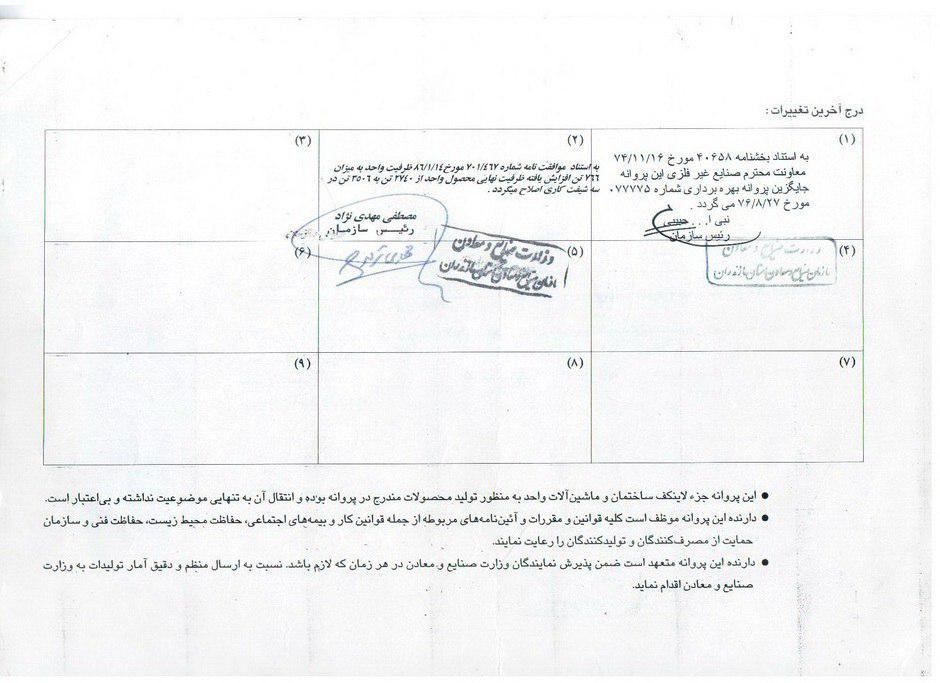 درج آخرین تغییرات :
(۱)
به استناد بخشنامه ۴۰۶۵۸ مورخ ۷۴/۱۱/۱۶
معاونت محترم صنایع غیر فلزی این پروانه
جایگزین پروانه بهره برداری شماره ۰۷۷۷۷۵
مورخ ۷۶/۸/۲۷ می گردد .
نبی ا... حبیبی
رئیس سازمان
(۲)
به استناد موافقت نامه شماره ۷۰۱/۴۶۷ مورخ ۸۶/۱/۱۴ ظرفیت واحد به میزان
۷۶۶ تن افزایش یافته ظرفیت نهایی محصول واحد از ۲۷۴۰ تن به ۳۵۰۶ تن در
سه شیفت کاری اصلاح میگردد.
مصطفی مهدی نژاد
رئیس سازمان
(۳)
(۴)
وزارت صنایع و معادن
سازمان صنایع و معادن استان مازندران
(۵)
وزارت صنایع و معادن
سازمان صنایع و معادن استان مازندران
(۶)
(۷)
(۸)
(۹)
● این پروانه جزء لاینکف ساختمان و ماشین‌آلات واحد به منظور تولید محصولات مندرج در پروانه بوده و انتقال آن به تنهایی موضوعیت نداشته و بی‌اعتبار است.
● دارنده این پروانه موظف است کلیه قوانین و مقررات و آئین‌نامه‌های مربوطه از جمله قوانین کار و بیمه‌های اجتماعی، حفاظت محیط زیست، حفاظت فنی و سازمان
حمایت از مصرف‌کنندگان و تولیدکنندگان را رعایت نمایند.
● دارنده این پروانه متعهد است ضمن پذیرش نمایندگان وزارت صنایع و معادن در هر زمان که لازم باشد. نسبت به ارسال منظم و دقیق آمار تولیدات به وزارت
صنایع و معادن اقدام نماید.